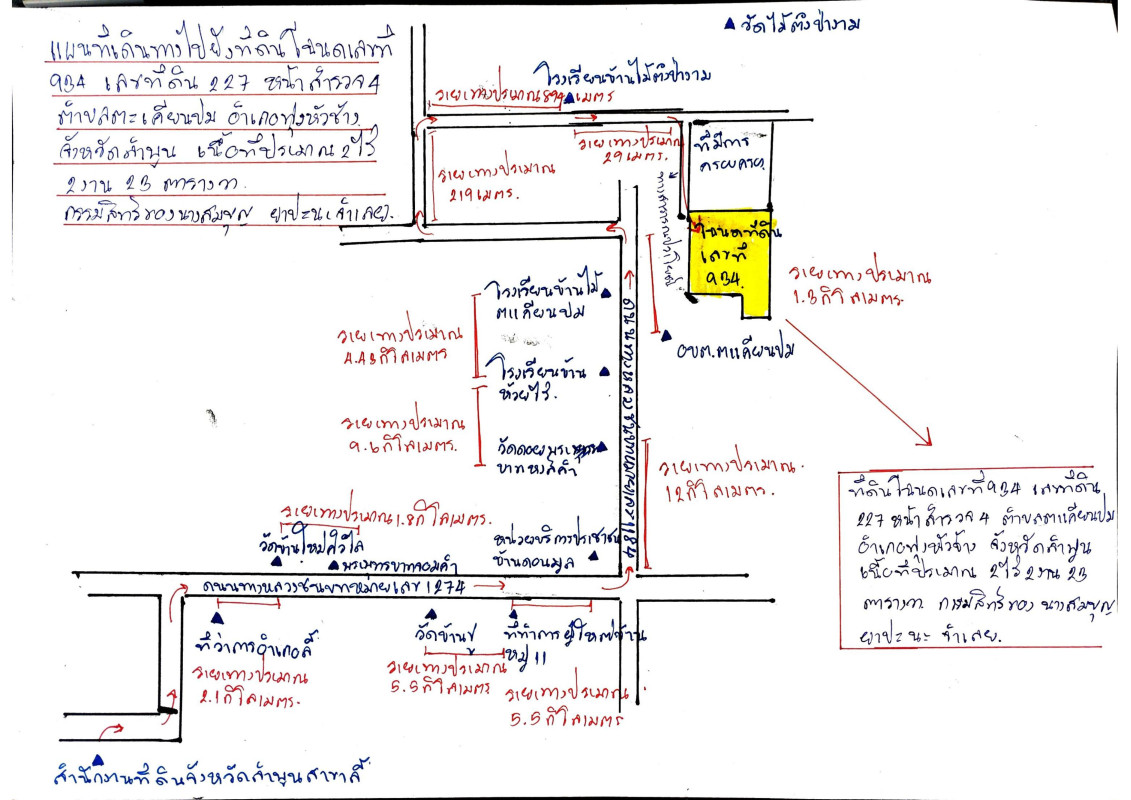 แผนที่เดินทางไปยังที่ดินโฉนดเลขที่
934 เลขที่ดิน 227 หน้าสำรวจ 4
ตำบลตะเคียนปม อำเภอทุ่งหัวช้าง
จังหวัดลำพูน เนื้อที่ประมาณ 2 ไร่
2 งาน 23 ตารางวา
กรรมสิทธิ์ของนางสมบุญ ยาปะนะ(จำเลย).
วัดไม้ตึงป่างาม
โรงเรียนบ้านไม้ตึงป่างาม
ระยะทางประมาณ 894 เมตร
ระยะทางประมาณ
29 เมตร.
ระยะทางประมาณ
219 เมตร.
ที่มีการ
ครอบครอง
ทางสาธารณประโยชน์
โฉนดที่ดิน
เลขที่
934.
ระยะทางประมาณ
1.3 กิโลเมตร.
อบต.ตะเคียนปม
โรงเรียนบ้านไม้
ตะเคียนปม
ระยะทางประมาณ
4.43 กิโลเมตร
โรงเรียนบ้าน
ห้วยไร่.
ระยะทางประมาณ
9.6 กิโลเมตร.
วัดดอยพระพุทธ
บาทหงส์คำ
ถนนทางหลวงชนบทหมายเลข 1184
ระยะทางประมาณ
12 กิโลเมตร.
ระยะทางประมาณ 1.8 กิโลเมตร.
วัดบ้านใหม่ศิวิไล
พระธาตุ
หน่วยบริการประชาชน
บ้านดอนมูล
ถนนทางหลวงชนบทหมายเลข 1274
ที่ว่าการอำเภอลี้
ระยะทางประมาณ
2.1 กิโลเมตร.
วัดบ้านปู
ระยะทางประมาณ
5.5 กิโลเมตร
ที่ทำการผู้ใหญ่บ้าน
หมู่ 11
ระยะทางประมาณ
5.5 กิโลเมตร
สำนักงานที่ดินจังหวัดลำพูน สาขาลี้
ที่ดินโฉนดเลขที่ 934 เลขที่ดิน
227 หน้าสำรวจ 4 ตำบลตะเคียนปม
อำเภอทุ่งหัวช้าง จังหวัดลำพูน
เนื้อที่ประมาณ 2 ไร่ 2 งาน 23
ตารางวา กรรมสิทธิ์ของ นางสมบุญ
ยาปะนะ จำเลย.